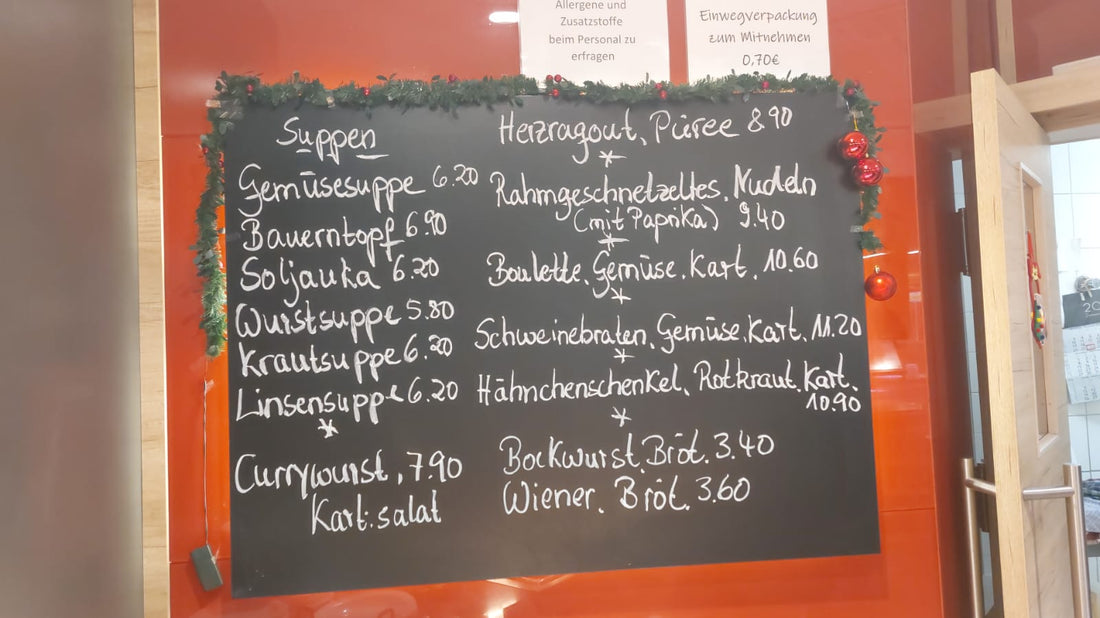 Allergene und
Zusatzstoffe
beim Personal zu
erfragen
Einwegverpackung
zum Mitnehmen
0,70€
Suppen
Gemüsesuppe 6.20
Bauerntopf 6.90
Soljanka 6.20
Wurstsuppe 5.80
Krautsuppe 6.20
Linsensuppe 6.20
Currywurst, 7.90
Kart.salat
Herzragout, Püree 8.90
Rahmgeschnetzeltes, Nudeln
(mit Paprika) 9.40
Boulette, Gemüse, Kart. 10.60
Schweinebraten, Gemüse, Kart. 11.20
Hähnchenschenkel, Rotkraut, Kart.
10.90
Bockwurst, Bröt. 3.40
Wiener, Bröt. 3.60